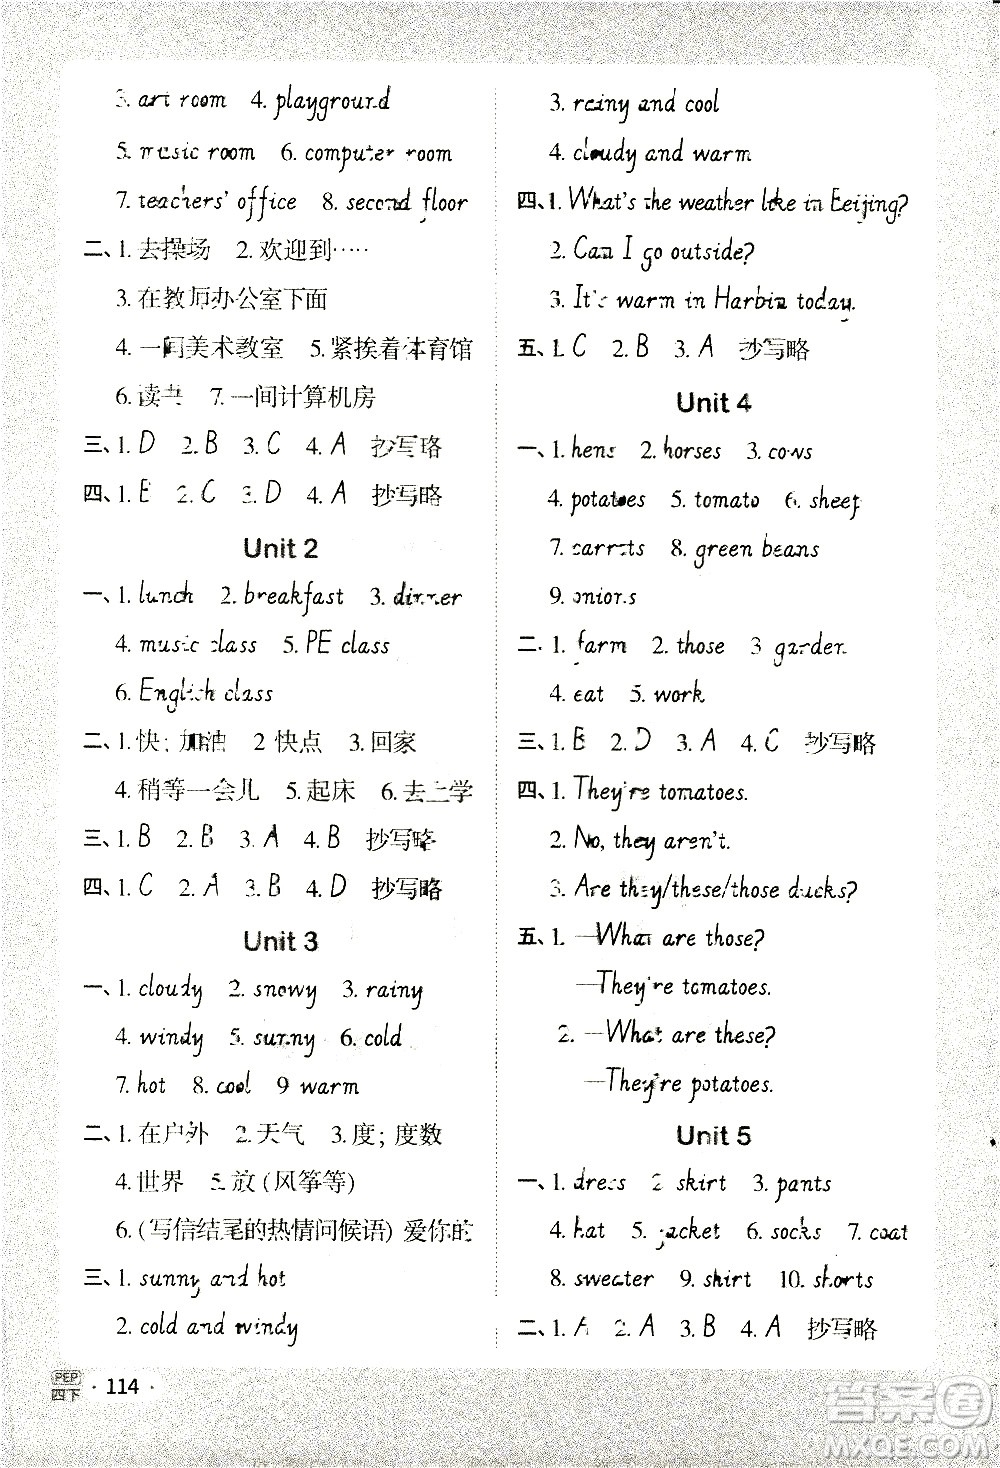 3. art room 4. playground
5. music room 6. computer room
7. teachers' office 8. second floor
二、1. 去操场 2. 欢迎到……
3. 在教师办公室下面
4. 一间美术教室 5. 紧挨着体育馆
6. 读书 7. 一间计算机房
三、1. D 2. B 3. C 4. A 抄写略
四、1. E 2. C 3. D 4. A 抄写略
Unit 2
一、1. lunch 2. breakfast 3. dinner
4. music class 5. PE class
6. English class
二、1. 快; 加油 2 快点 3. 回家
4. 稍等一会儿 5. 起床 6. 去上学
三、1. B 2. B 3. A 4. B 抄写略
四、1. C 2. A 3. B 4. D 抄写略
Unit 3
一、1. cloudy 2. snowy 3. rainy
4. windy 5. sunny 6. cold
7. hot 8. cool 9 warm
二、1. 在户外 2. 天气 3. 度; 度数
4. 世界 5. 放 (风筝等)
6. (写信结尾的热情问候语) 爱你的
三、1. sunny and hot
2. cold and windy
3. rainy and cool
4. cloudy and warm
四、1. What's the weather like in Beijing?
2. Can I go outside?
3. It's warm in Harbin today.
五、1. C 2. B 3. A 抄写略
Unit 4
一、1. hens 2. horses 3. cows
4. potatoes 5. tomato 6. sheep
7. carrots 8. green beans
9. onions
二、1. farm 2. those 3 garden
4. eat 5. work
三、1. B 2. D 3. A 4. C 抄写略
四、1. They're tomatoes.
2. No, they aren't.
3. Are they/these/those ducks?
五、1. —What are those?
—They're tomatoes.
2. —What are these?
—They're potatoes.
Unit 5
一、1. dress 2 skirt 3. pants
4. hat 5. jacket 6. socks 7. coat
8. sweater 9. shirt 10. shorts
二、1. A 2. A 3. B 4. A 抄写略
PEP
四下 · 114 ·
答案圈
MXQE.COM